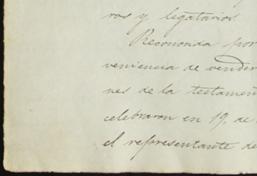 ros y legatarios.
Reconocida por
veniencia de vender
nes de la testamen
celebraron en 19, de
el representante de